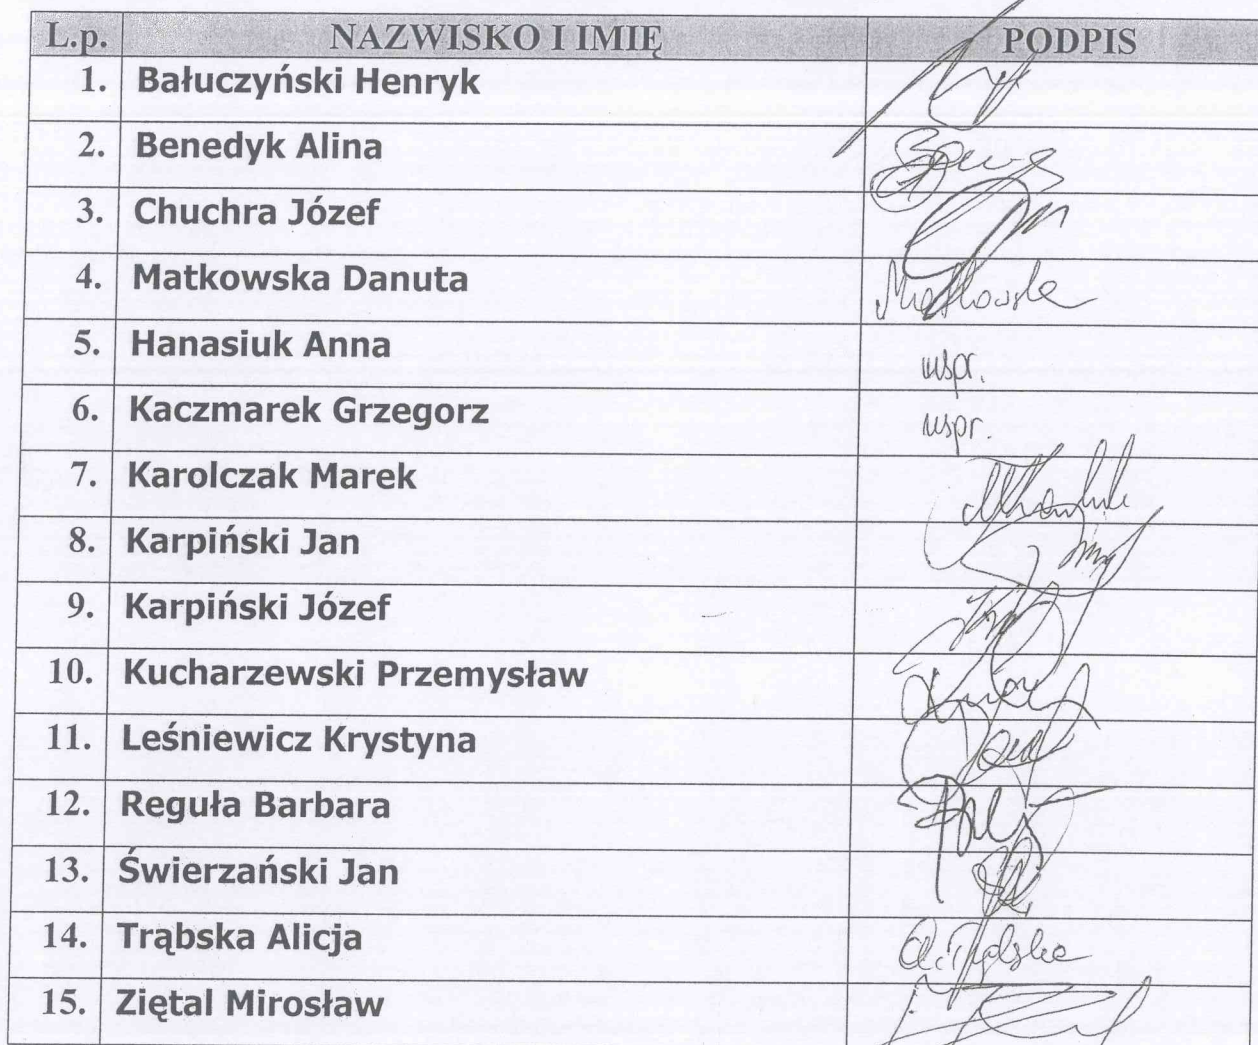 L.p. NAZWISKO I IMIĘ PODPIS
1. Bałuczyński Henryk
2. Benedyk Alina
3. Chuchra Józef
4. Matkowska Danuta Matkowska
5. Hanasiuk Anna uspr.
6. Kaczmarek Grzegorz uspr.
7. Karolczak Marek
8. Karpiński Jan
9. Karpiński Józef
10. Kucharzewski Przemysław
11. Leśniewicz Krystyna
12. Reguła Barbara
13. Świerzański Jan
14. Trąbska Alicja
15. Ziętal Mirosław